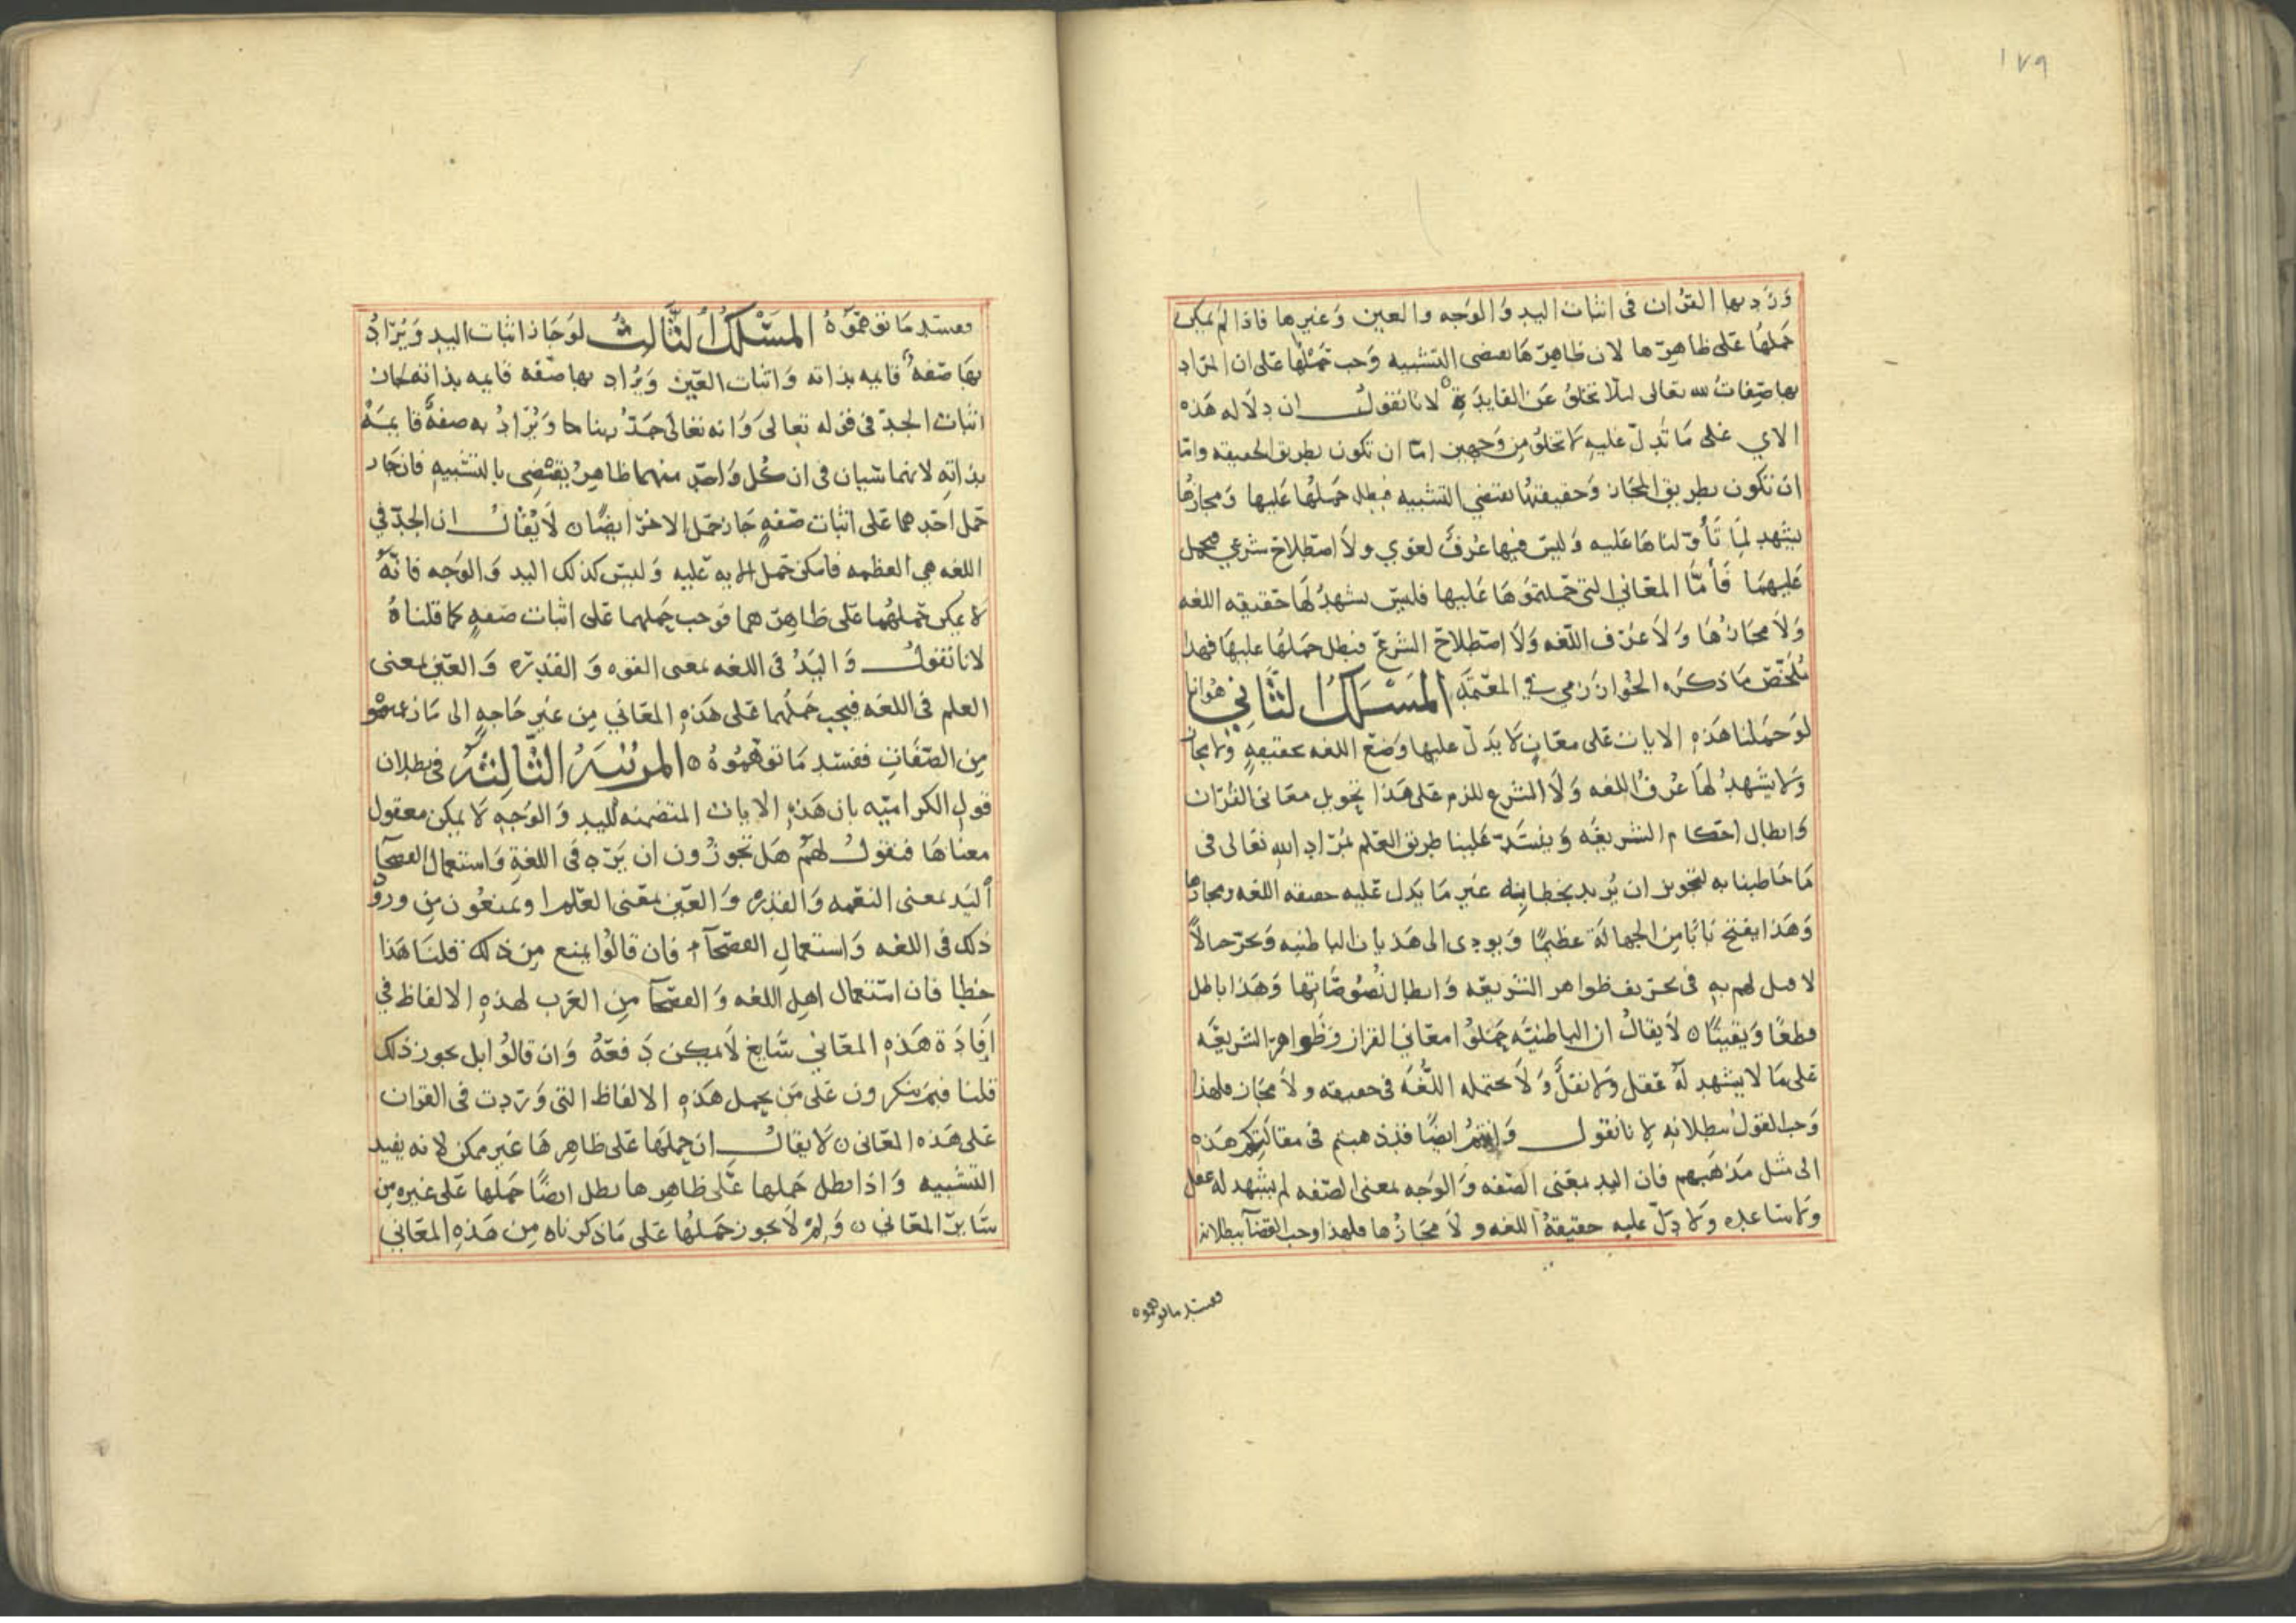 ١٧٩
ورد بها القران في اثبات اليد والوجه والعين وغيرها فاذا لم يمكن
حملها على ظاهرها لان ظاهرها يقضي التشبيه وجب حملها على ان المراد
بها صفات لله تعالى ليلا تخلو عن الفايدة لانا نقول ان دلاله هذه
الاي على ما تدل عليه لا تخلو من وجهين اما ان تكون بطريق الحقيقه واما
ان تكون بطريق المجاز وحقيقتها يقتضي التشبيه فبطل حملها عليها ومجازها
يشهد لما تأولناها عليه وليس فيها عرف لغوي ولا اصطلاح شرعي فيحمل
عليهما فأما المعاني التي حملتموها عليها فليس يشهد لها حقيقه اللغه
ولا مجازها ولا عرف اللغه ولا اصطلاح الشرع فبطل حملها عليها فهذا
ملخص ما ذكره الخوارزمي في المعتمد المسلك الثاني هو انا
لو حملنا هذه الايات على معان لا يدل عليها وضع اللغه بحقيقه ولا مجاز
ولا يشهد لها عرف اللغه ولا الشرع للزم على هذا تحويل معاني القران
وابطال احكام الشريعه وينسد علينا طريق العلم بمراد الله تعالى في
ما خاطبنا به لتجويز ان يريد بخطابه غير ما يدل عليه حقيقه اللغه ومجازها
وهذا يفتح بابا من الجهالة عظيما ويودي الى هذيان الباطنيه ويجر حالا
لا قبل لهم به في تحريف ظواهر الشريعه وابطال نصوصاتها وهذا باطل
قطعا ويقينا ٥ لا يقال ان الباطنيه حملوا معاني القران وظواهر الشريعه
على ما لا يشهد له عقل ولا نقل ولا تحتمله اللغه في حقيقه ولا مجاز فلهذا
وجب القول ببطلانه لانا نقول وانتم ايضا فقد ذهبتم في مقالتكم هذه
الى مثل مذهبهم فان اليد بمعنى الصفه والوجه بمعنى الصفه لم يشهد له عقل
ولا ساعده ولا دل عليه حقيقة اللغه ولا مجازها فلهذا وجب القضا ببطلانه
ففسد ما توهموه
ففسد ما توهموه المسلك الثالث لو جاز اثبات اليد ويراد
بها صفه قايمه بذاته واثبات العين ويراد بها صفه قايمه بذاته لجاز
اثبات الجد في قوله تعالى وانه تعالى جد ربنا ويراد به صفة قايمة
بذاته لانهما سيان في ان كل واحد منهما ظاهره يقتضي بالتشبيه فان جاز
حمل احدهما على اثبات صفه جاز حمل الاخر ايضا ٥ لا يقال ان الجد في
اللغه هي العظمه فامكن حمل الايه عليه وليس كذلك اليد والوجه فانه
لا يمكن حملهما على ظاهرهما فوجب حملهما على اثبات صفه كما قلناه
لانا نقول واليد في اللغه بمعنى القوه والقدره والعين بمعنى
العلم في اللغه فيجب حملهما على هذه المعاني من غير حاجه الى ما زعمتموه
من الصفات ففسد ما توهموه ٥ المرتبة الثالثة في بطلان
قول الكراميه بان هذه الايات المتضمنه لليد والوجه لا يمكن معقول
معناها فنقول لهم هل تجوزون ان يرد في اللغة واستعمال الفصحا
اليد بمعنى النعمه والقدره والعين بمعنى العلم او تمنعون من ورود
ذلك في اللغه واستعمال الفصحآ فان قالوا يمنع من ذلك قلنا هذا
خطا فان استعمال اهل اللغه والفصحا من العرب لهذه الالفاظ في
افادة هذه المعاني شايع لا يمكن دفعه وان قالوا بل يجوز ذلك
قلنا فبم تنكرون على من يحمل هذه الالفاظ التي وردت في القران
على هذه المعاني ٥ لا يقال ان حملها على ظاهرها غير ممكن لانه يفيد
التشبيه واذا بطل حملها على ظاهرها بطل ايضا حملها على غيره من
ساير المعاني ٥ ولم لا يجوز حملها على ما ذكرناه من هذه المعاني